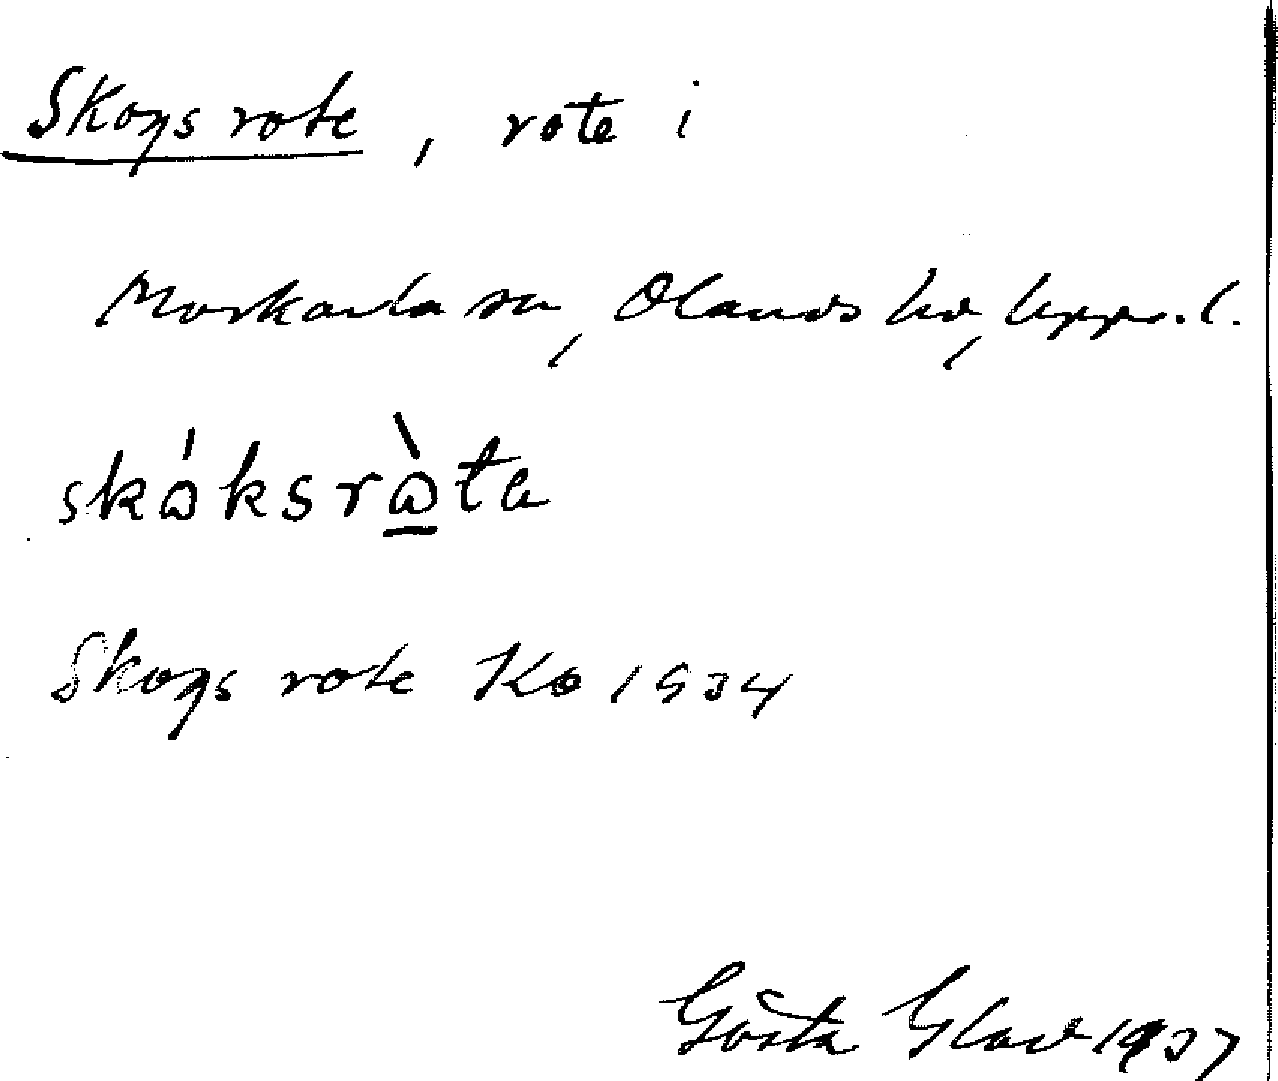 Skogs rote, rote i
Morkarla sn, Olands hd, Upps. l.
skɷ́ksrɷ̱̀ta
Skogs rote Ko 1934
Gösta 1937